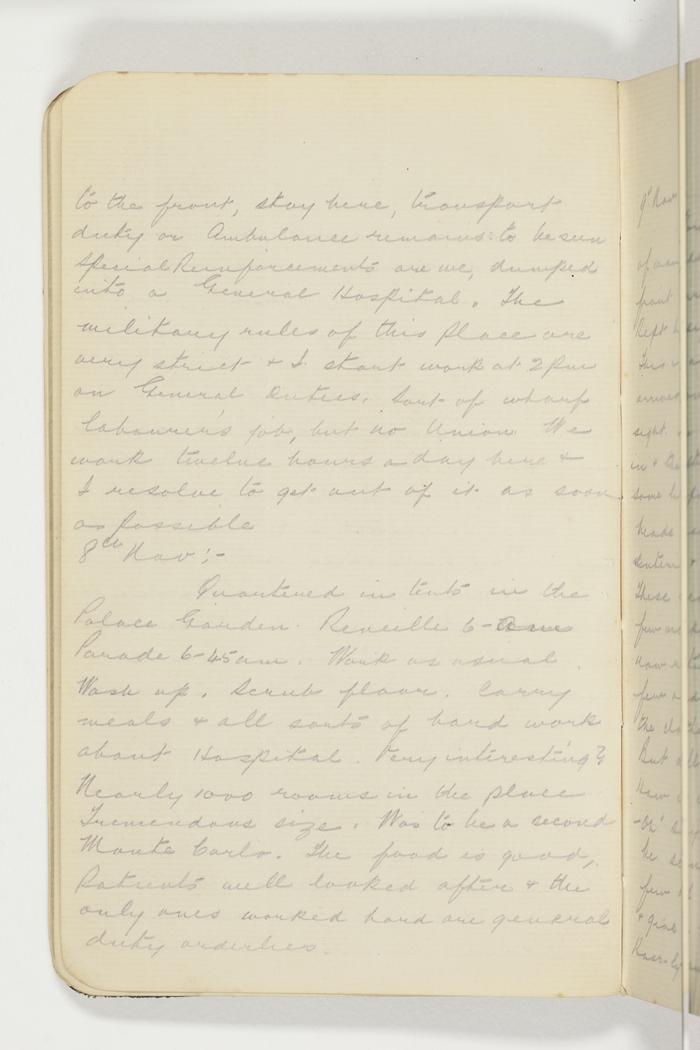 to the front, stay here, transport
duty or Ambulance remains to be seen
Special Reinforcements are we, dumped
into a General Hospital. The
military rules of this place are
very strict & I start work at 2 pm
on General Duties. Sort of wharf
labourer's job, but no Union. We
work twelve hours a day here &
I resolve to get out of it as soon
as possible
8th Nov:-
Quartered in tents in the
Palace Garden. Reveille 6-am
Parade 6-45am. Work as usual.
Wash up. Scrub floor. Carry
meals & all sorts of hard work
about Hospital. Very interesting?
Nearly 1000 rooms in the place
Tremendous size. Was to be a second
Monte Carlo. The food is good,
Patients well looked after & the
only ones worked hard are general
duty orderlies.
9th Nov
front
left
This
arrived
sight.
in &
some
heads
These
few
now
few
the
But
How
-Oh'
he
few